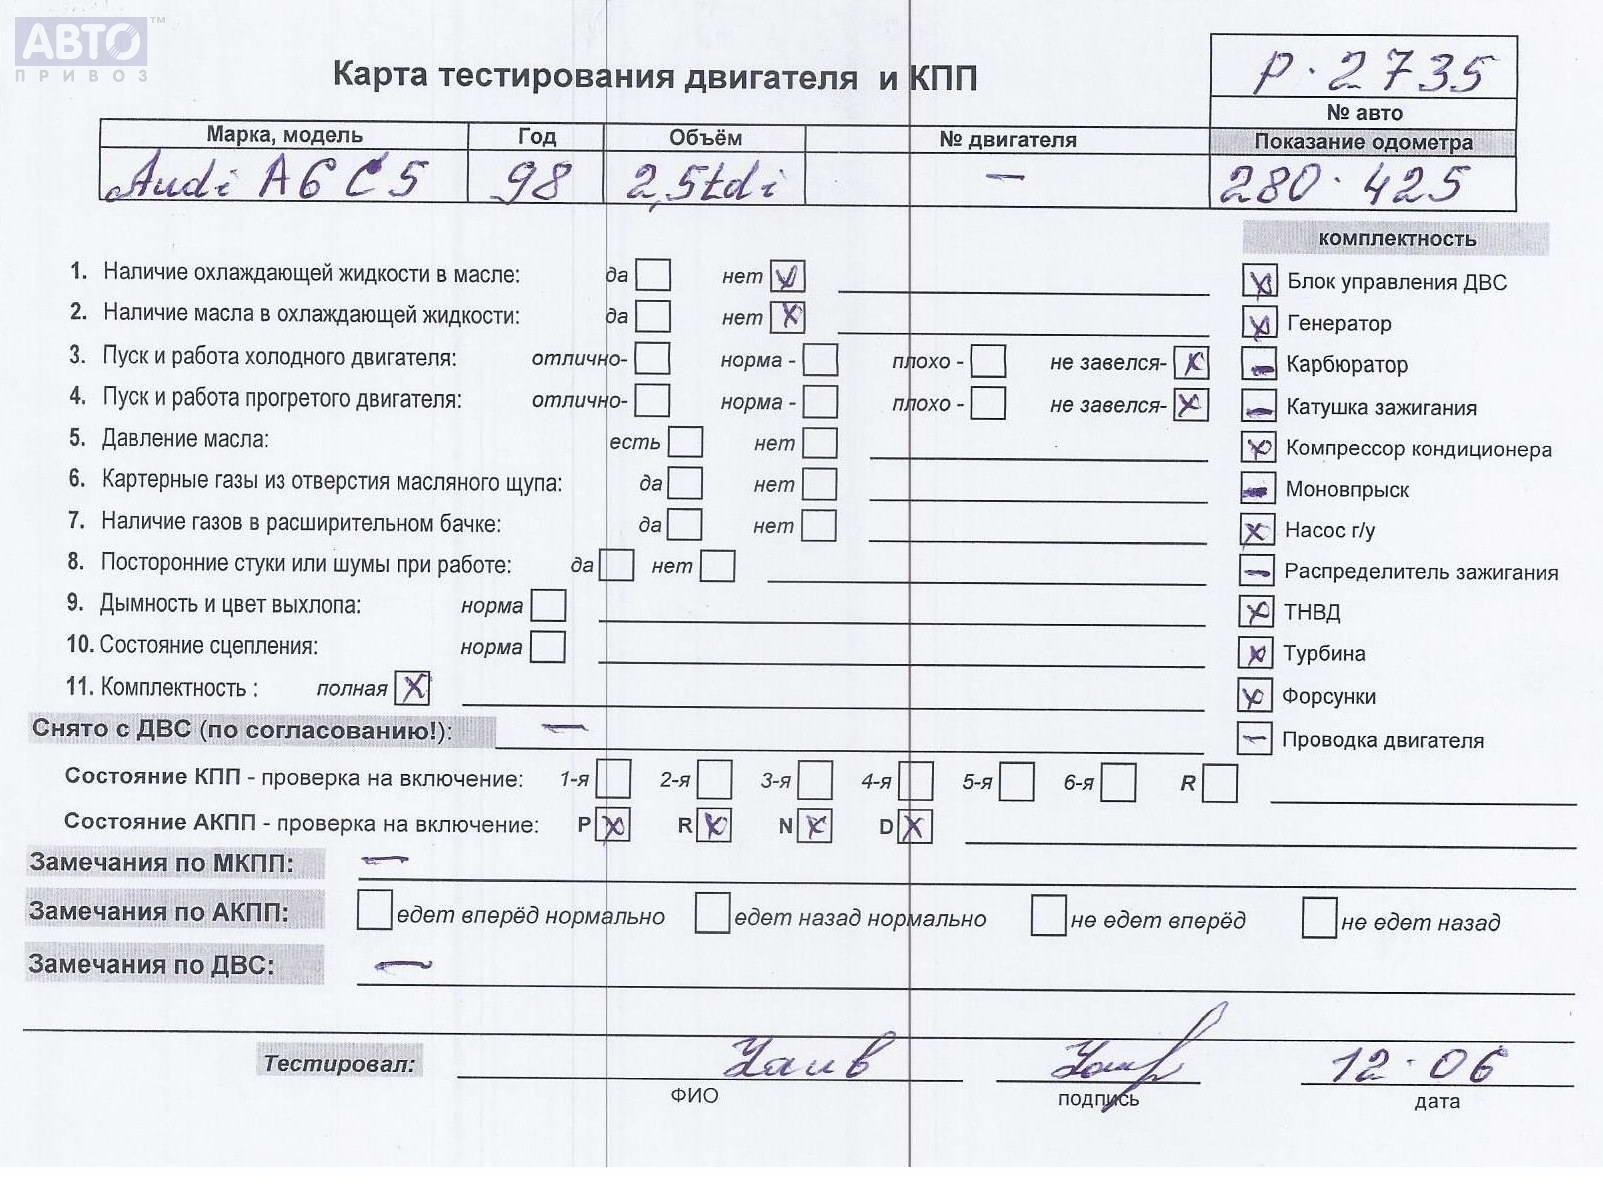 АВТО™
ПРИВОЗ
Карта тестирования двигателя и КПП
Р·2735
№ авто
Марка, модель Год Объём № двигателя Показание одометра
Audi A6 C5 98 2,5tdi — 280·425
комплектность
1. Наличие охлаждающей жидкости в масле: да нет
Блок управления ДВС
2. Наличие масла в охлаждающей жидкости: да нет
Генератор
3. Пуск и работа холодного двигателя: отлично- норма - плохо - не завелся-
Карбюратор
4. Пуск и работа прогретого двигателя: отлично- норма - плохо - не завелся-
Катушка зажигания
5. Давление масла: есть нет
Компрессор кондиционера
6. Картерные газы из отверстия масляного щупа: да нет
Моновпрыск
7. Наличие газов в расширительном бачке: да нет
Насос г/у
8. Посторонние стуки или шумы при работе: да нет
Распределитель зажигания
9. Дымность и цвет выхлопа: норма
ТНВД
10. Состояние сцепления: норма
Турбина
11. Комплектность : полная
Форсунки
Снято с ДВС (по согласованию!): —
Проводка двигателя
Состояние КПП - проверка на включение: 1-я 2-я 3-я 4-я 5-я 6-я R
Состояние АКПП - проверка на включение: P R N D
Замечания по МКПП: —
Замечания по АКПП: едет вперёд нормально едет назад нормально не едет вперёд не едет назад
Замечания по ДВС: —
Тестировал: 12·06
ФИО подпись дата